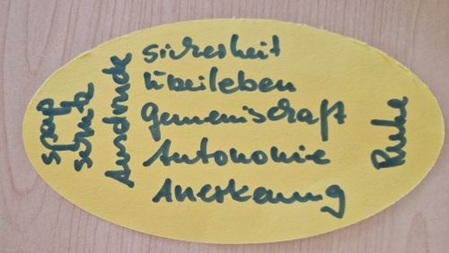 Spaß
Schutz
Ausdruck
Sicherheit
Überleben
Gemeinschaft
Autonomie
Anerkennung
Ruhe